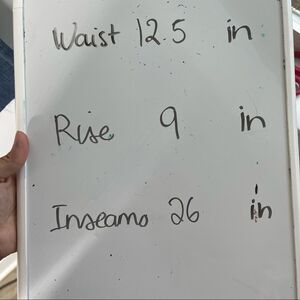 Waist 12.5 in
Rise 9 in
Inseams 26 in